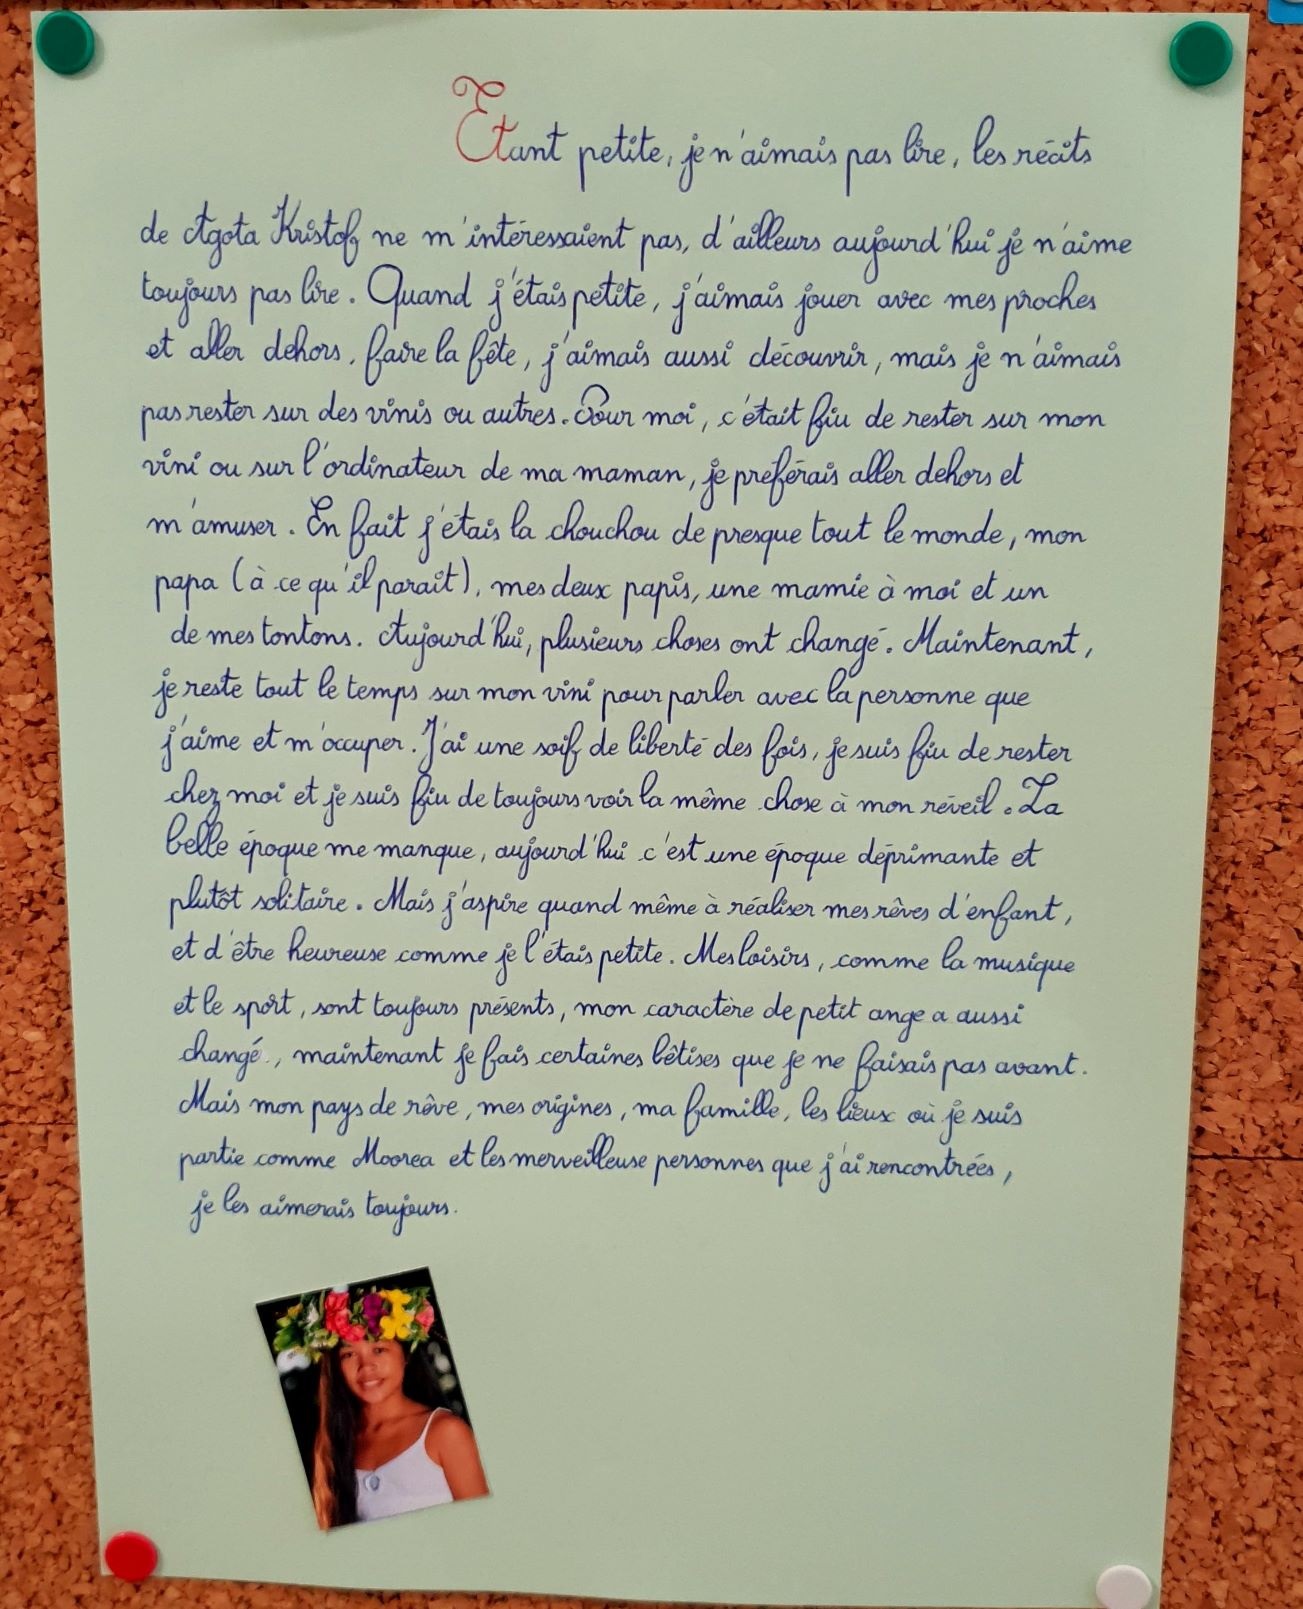 Etant petite, je n'aimais pas lire, les récits
de Agota Kristof ne m'intéressaient pas, d'ailleurs aujourd'hui je n'aime
toujours pas lire. Quand j'étais petite, j'aimais jouer avec mes proches
et aller dehors, faire la fête, j'aimais aussi découvrir, mais je n'aimais
pas rester sur des vinis ou autres. Pour moi, c'était fiu de rester sur mon
vini ou sur l'ordinateur de ma maman, je préférais aller dehors et
m'amuser. En fait j'étais la chouchou de presque tout le monde, mon
papa (à ce qu'il parait), mes deux papis, une mamie à moi et un
de mes tontons. Aujourd'hui, plusieurs choses ont changé. Maintenant,
je reste tout le temps sur mon vini pour parler avec la personne que
j'aime et m'occuper. J'ai une soif de liberté des fois, je suis fiu de rester
chez moi et je suis fiu de toujours voir la même chose à mon réveil. La
belle époque me manque, aujourd'hui c'est une époque déprimante et
plutôt solitaire. Mais j'aspire quand même à réaliser mes rêves d'enfant,
et d'être heureuse comme je l'étais petite. Mes loisirs, comme la musique
et le sport, sont toujours présents, mon caractère de petit ange a aussi
changé, maintenant je fais certaines bêtises que je ne faisais pas avant.
Mais mon pays de rêve, mes origines, ma famille, les lieux où je suis
partie comme Moorea et les merveilleuse personnes que j'ai rencontrées,
je les aimerais toujours.